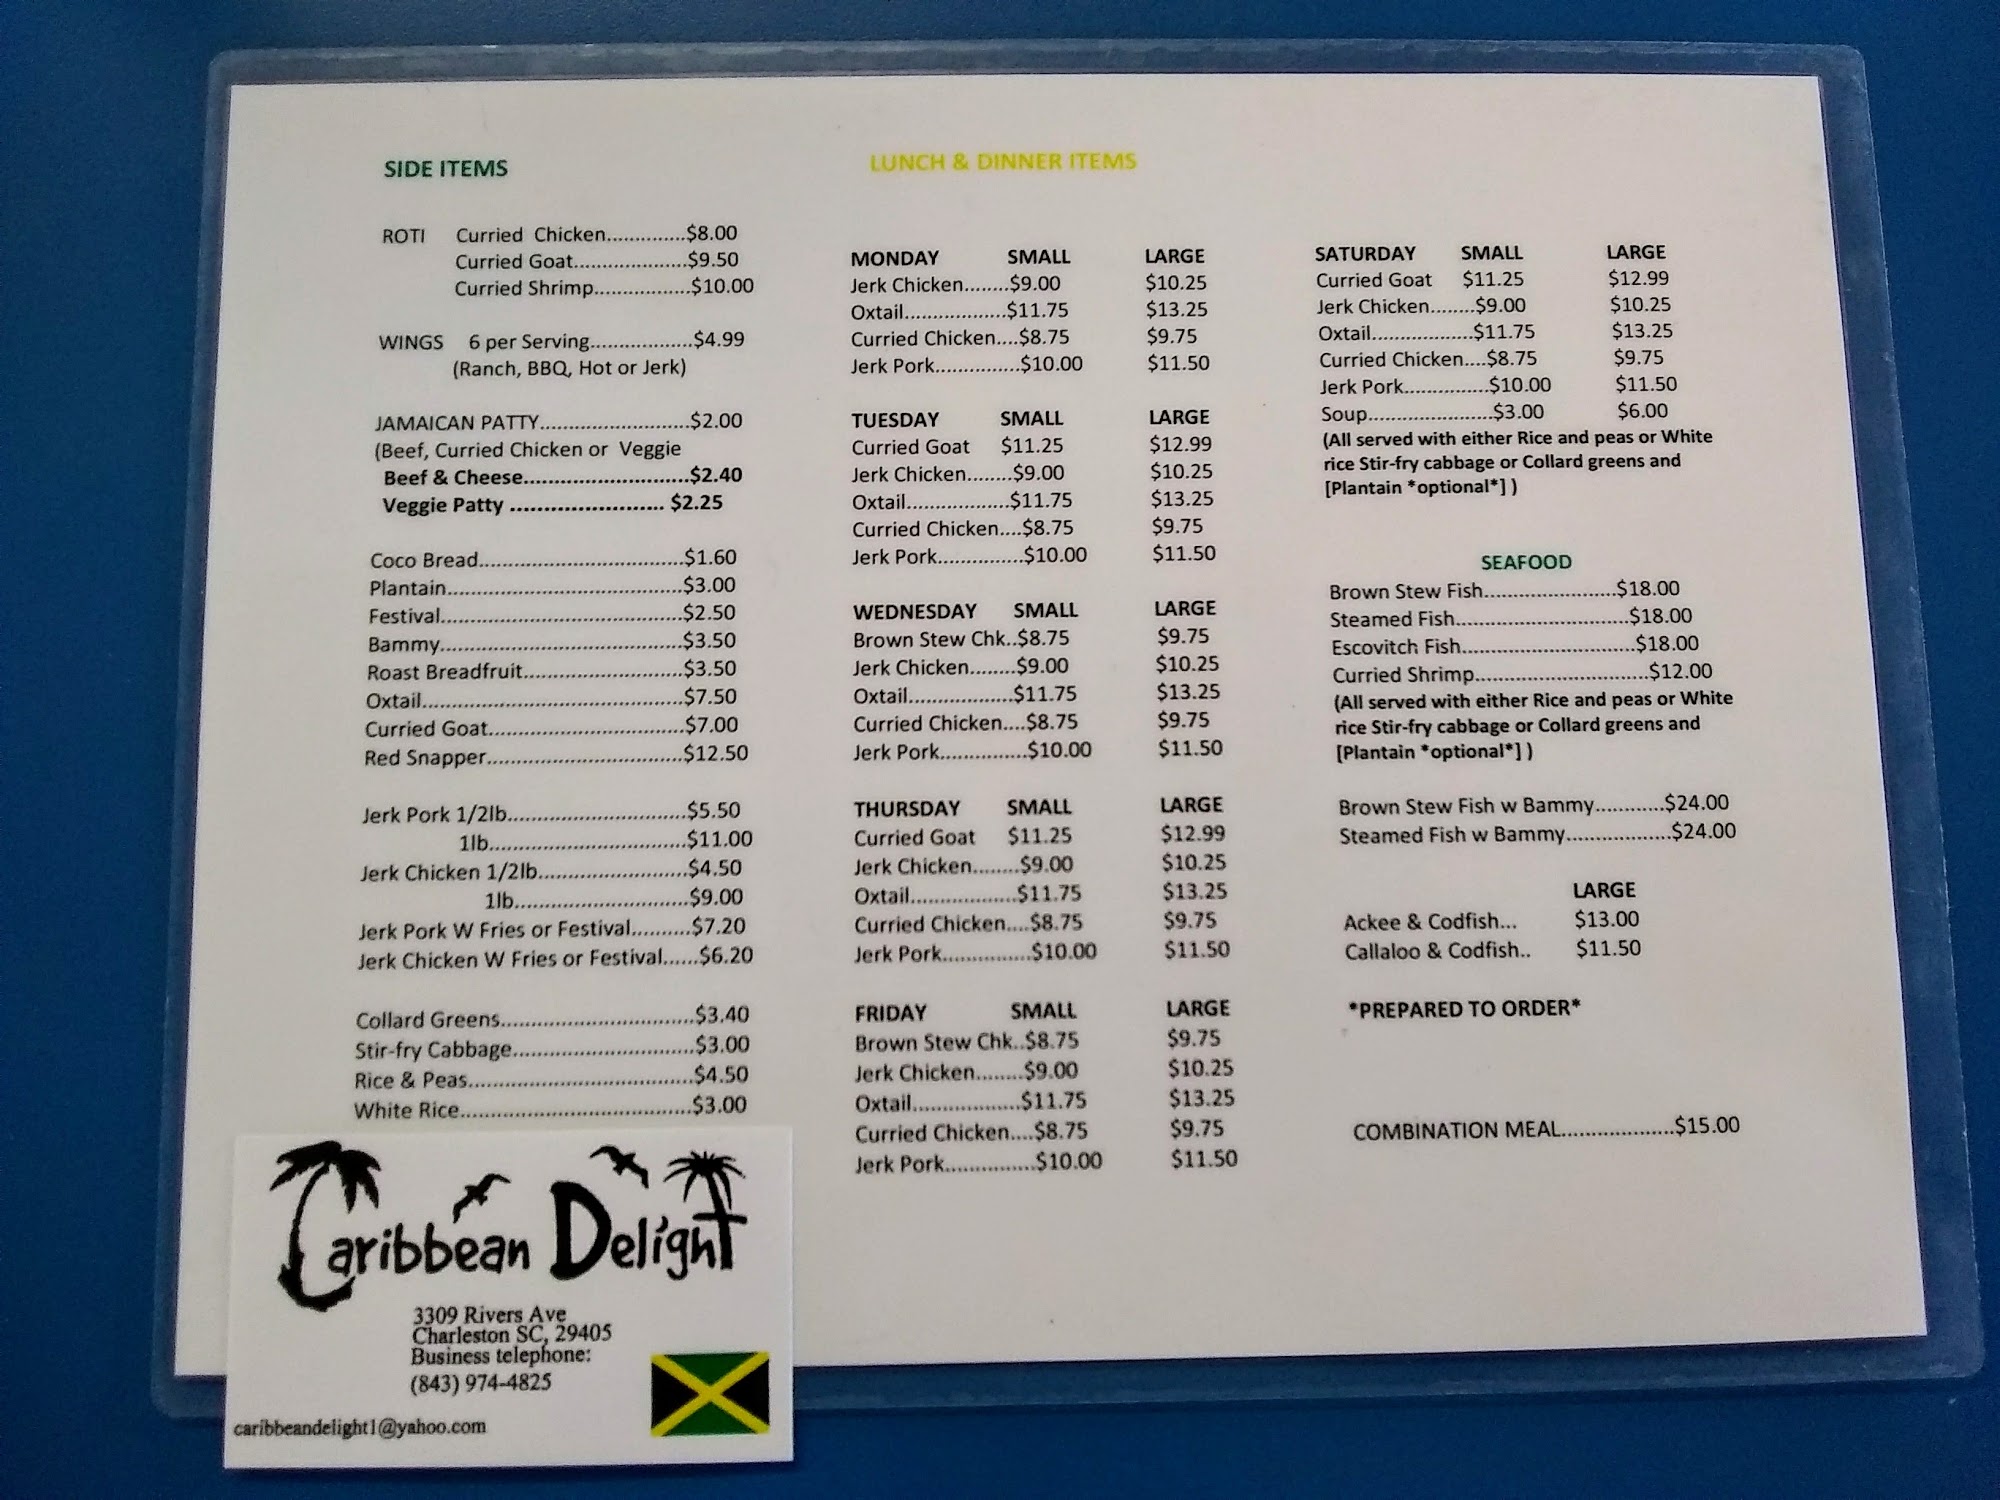 SIDE ITEMS
ROTI Curried Chicken..............$8.00
Curried Goat.....................$9.50
Curried Shrimp.................$10.00
WINGS 6 per Serving...................$4.99
(Ranch, BBQ, Hot or Jerk)
JAMAICAN PATTY...........................$2.00
(Beef, Curried Chicken or Veggie
Beef & Cheese............................$2.40
Veggie Patty ........................ $2.25
Coco Bread...................................$1.60
Plantain........................................$3.00
Festival.........................................$2.50
Bammy.........................................$3.50
Roast Breadfruit...........................$3.50
Oxtail............................................$7.50
Curried Goat.................................$7.00
Red Snapper.................................$12.50
Jerk Pork 1/2lb..............................$5.50
1lb.................................$11.00
Jerk Chicken 1/2lb.........................$4.50
1lb.............................$9.00
Jerk Pork W Fries or Festival..........$7.20
Jerk Chicken W Fries or Festival......$6.20
Collard Greens................................$3.40
Stir-fry Cabbage..............................$3.00
Rice & Peas.....................................$4.50
White Rice......................................$3.00
LUNCH & DINNER ITEMS
MONDAY SMALL LARGE
Jerk Chicken........$9.00 $10.25
Oxtail...................$11.75 $13.25
Curried Chicken....$8.75 $9.75
Jerk Pork...............$10.00 $11.50
TUESDAY SMALL LARGE
Curried Goat $11.25 $12.99
Jerk Chicken........$9.00 $10.25
Oxtail...................$11.75 $13.25
Curried Chicken....$8.75 $9.75
Jerk Pork...............$10.00 $11.50
WEDNESDAY SMALL LARGE
Brown Stew Chk..$8.75 $9.75
Jerk Chicken........$9.00 $10.25
Oxtail...................$11.75 $13.25
Curried Chicken....$8.75 $9.75
Jerk Pork...............$10.00 $11.50
THURSDAY SMALL LARGE
Curried Goat $11.25 $12.99
Jerk Chicken........$9.00 $10.25
Oxtail...................$11.75 $13.25
Curried Chicken....$8.75 $9.75
Jerk Pork...............$10.00 $11.50
FRIDAY SMALL LARGE
Brown Stew Chk..$8.75 $9.75
Jerk Chicken........$9.00 $10.25
Oxtail...................$11.75 $13.25
Curried Chicken....$8.75 $9.75
Jerk Pork...............$10.00 $11.50
SATURDAY SMALL LARGE
Curried Goat $11.25 $12.99
Jerk Chicken........$9.00 $10.25
Oxtail...................$11.75 $13.25
Curried Chicken....$8.75 $9.75
Jerk Pork...............$10.00 $11.50
Soup.......................$3.00 $6.00
(All served with either Rice and peas or White
rice Stir-fry cabbage or Collard greens and
[Plantain *optional*] )
SEAFOOD
Brown Stew Fish.......................$18.00
Steamed Fish..............................$18.00
Escovitch Fish..............................$18.00
Curried Shrimp..............................$12.00
(All served with either Rice and peas or White
rice Stir-fry cabbage or Collard greens and
[Plantain *optional*] )
Brown Stew Fish w Bammy............$24.00
Steamed Fish w Bammy..................$24.00
LARGE
Ackee & Codfish... $13.00
Callaloo & Codfish.. $11.50
*PREPARED TO ORDER*
COMBINATION MEAL....................$15.00
Caribbean Delight
3309 Rivers Ave
Charleston SC, 29405
Business telephone:
(843) 974-4825
caribbeandelight1@yahoo.com